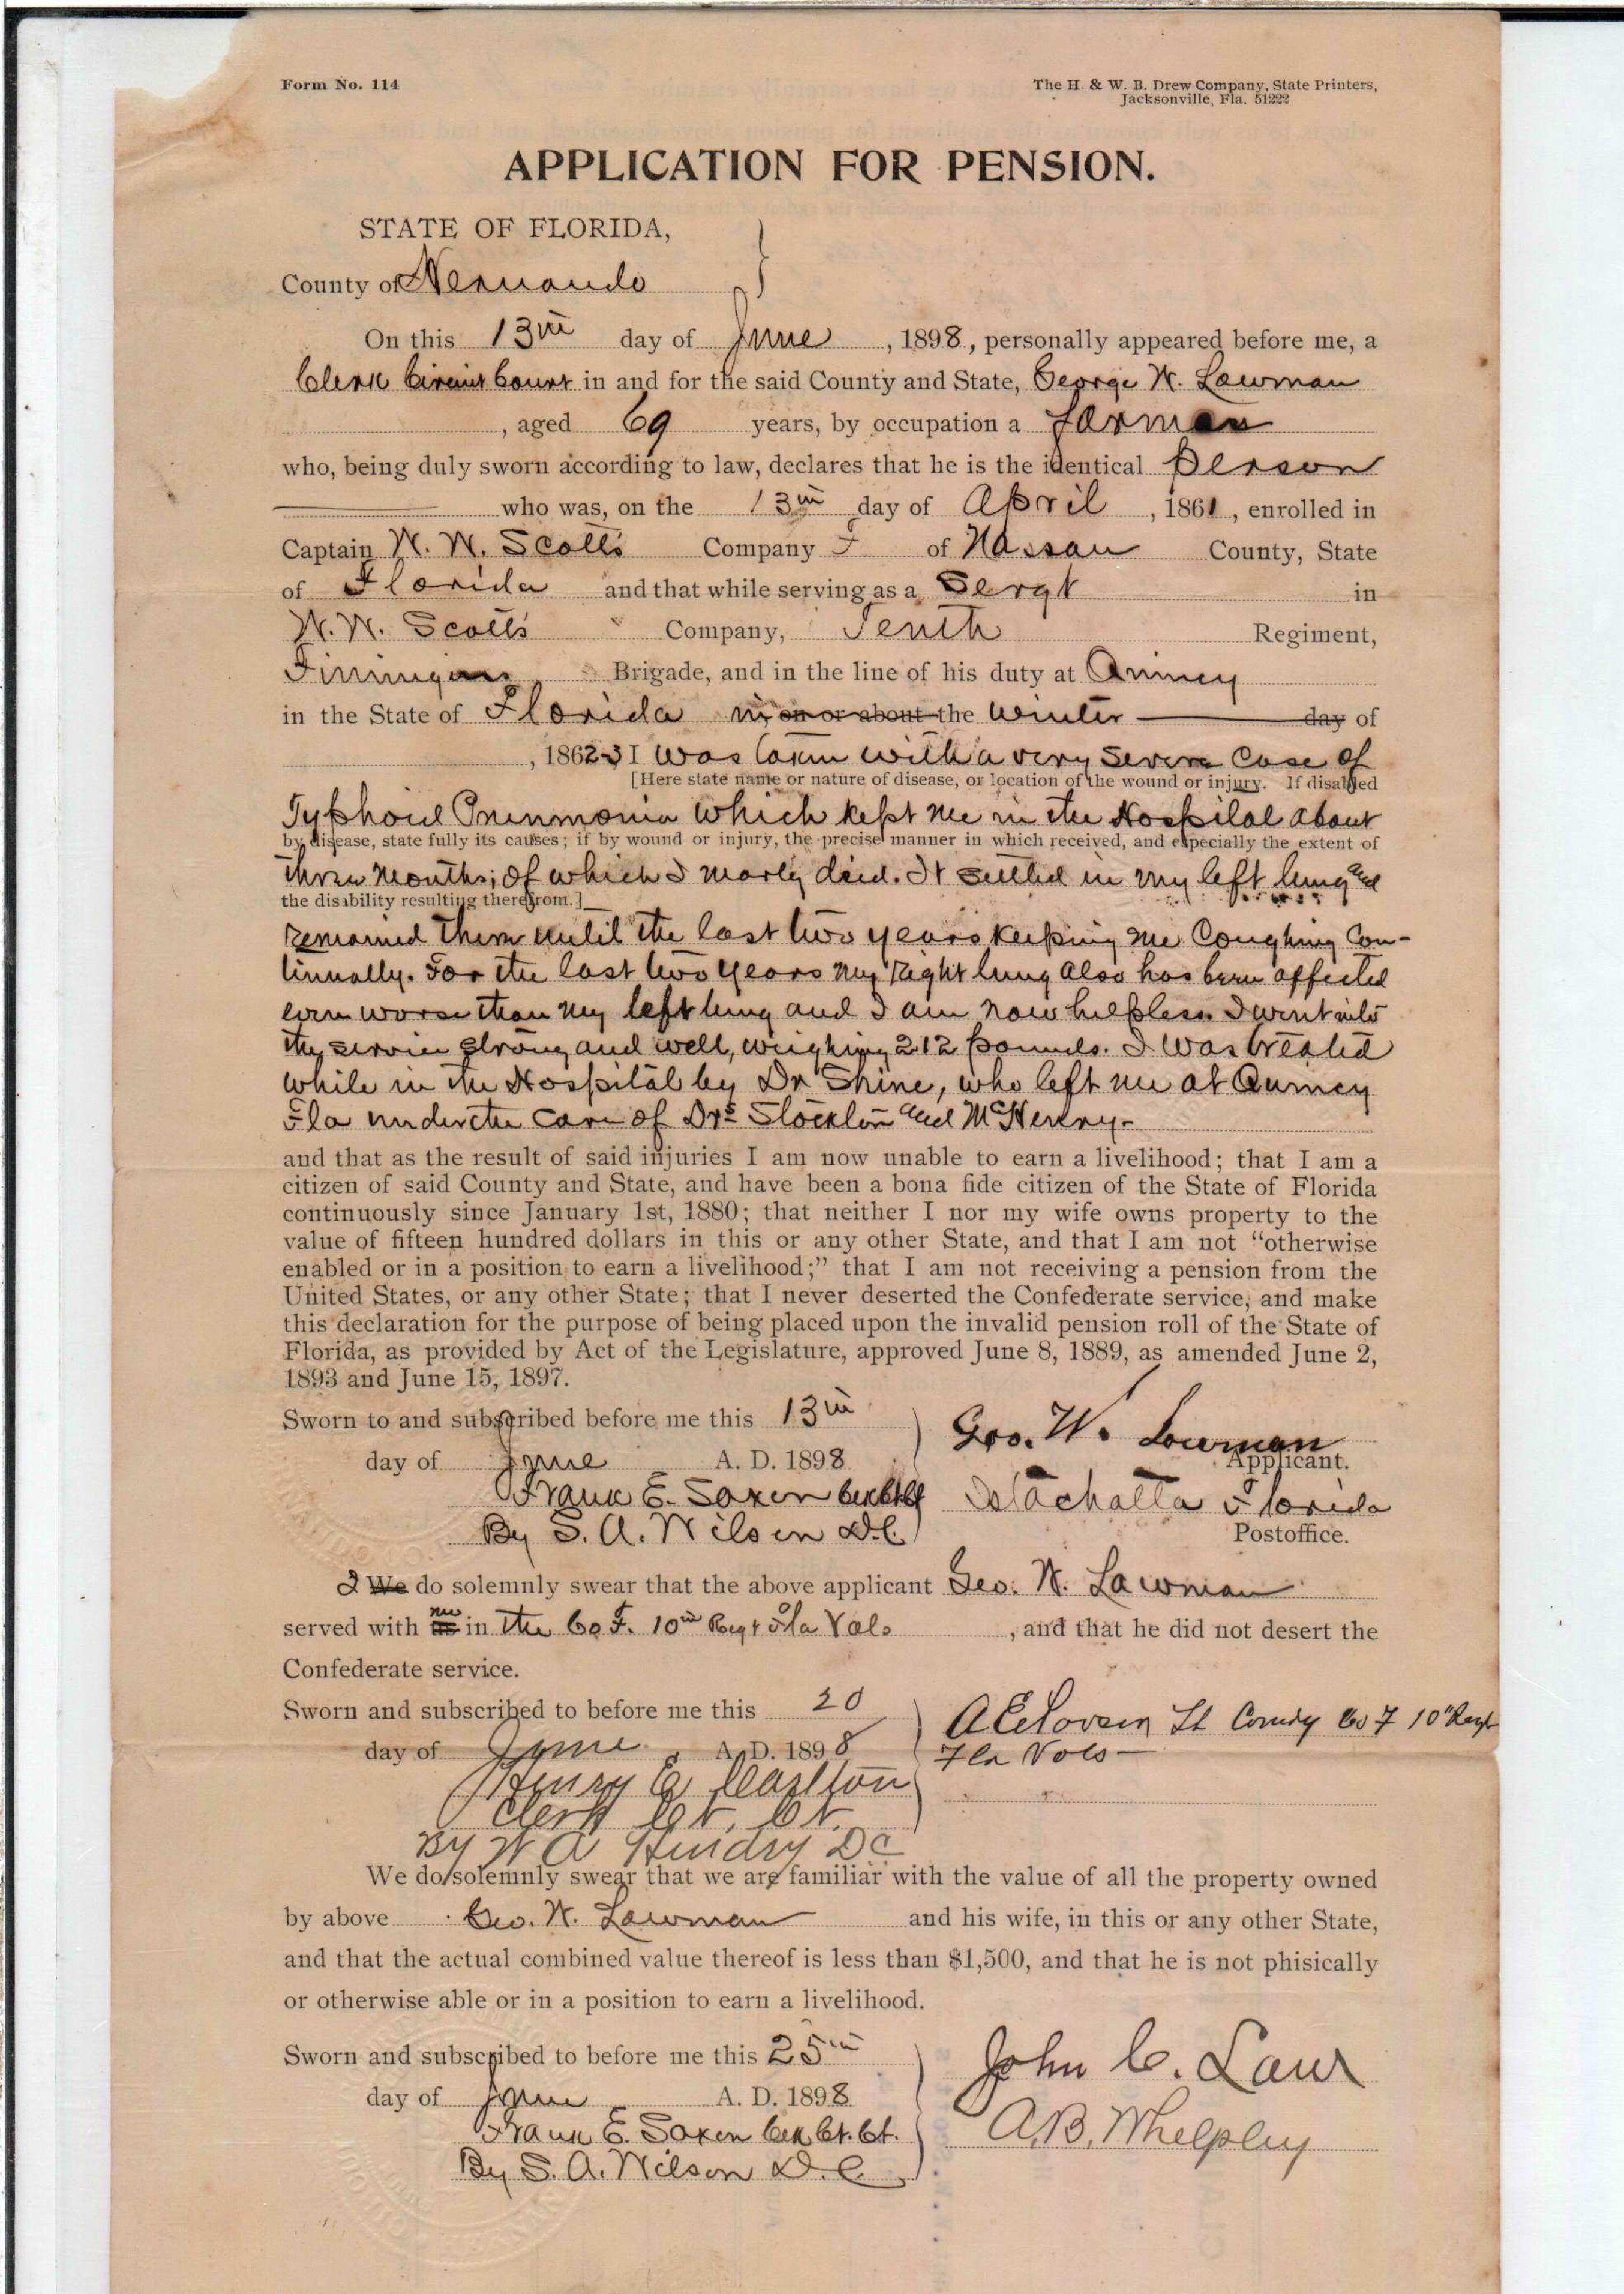 Form No. 114
The H. & W. B. Drew Company, State Printers,
Jacksonville, Fla. 51222
APPLICATION FOR PENSION.
STATE OF FLORIDA,
County of Hernando
On this 13th day of June, 1898, personally appeared before me, a
Clerk Circuit Court in and for the said County and State, George W. Lowman
, aged 69 years, by occupation a farmer
who, being duly sworn according to law, declares that he is the identical person
who was, on the 13th day of April, 1861, enrolled in
Captain W. W. Scotts Company F of Nassau County, State
of Florida and that while serving as a Sergt in
W. W. Scotts Company, Tenth Regiment,
Finnigans Brigade, and in the line of his duty at Quincy
in the State of Florida in on or about the winter day of
, 1862-3 I was taken with a very severe case of
[Here state name or nature of disease, or location of the wound or injury. If disabled
Typhoid Pneumonia which kept me in the Hospital about
by disease, state fully its causes; if by wound or injury, the precise manner in which received, and especially the extent of
three months; of which I nearly died. It settled in my left lung and
the disability resulting therefrom.]
remained there until the last two years keeping me coughing con-
tinually. For the last two years my right lung also has been affected
even worse than my left lung and I am now helpless. I went into
the service strong and well, weighing 212 pounds. I was treated
while in the Hospital by Dr Shine, who left me at Quincy
Fla under the care of Drs Stockton and McHenry-
and that as the result of said injuries I am now unable to earn a livelihood; that I am a
citizen of said County and State, and have been a bona fide citizen of the State of Florida
continuously since January 1st, 1880; that neither I nor my wife owns property to the
value of fifteen hundred dollars in this or any other State, and that I am not "otherwise
enabled or in a position to earn a livelihood;" that I am not receiving a pension from the
United States, or any other State; that I never deserted the Confederate service, and make
this declaration for the purpose of being placed upon the invalid pension roll of the State of
Florida, as provided by Act of the Legislature, approved June 8, 1889, as amended June 2,
1893 and June 15, 1897.
Sworn to and subscribed before me this 13th
day of June A. D. 1898
Geo. W. Lowman
Applicant.
Frank E. Saxon Clk Ct Ct
By S. A. Wilson D.C.
Istachatta Florida
Postoffice.
I We do solemnly swear that the above applicant Geo. W. Lowman
served with me us in the Co F. 10th Regt Fla Vols, and that he did not desert the
Confederate service.
Sworn and subscribed to before me this 20
day of June A. D. 1898
Lt Comdg Co F 10" Regt
Fla Vols-
Henry E Carlton
Clerk Ct. Ct.
By W A Hendry DC
We do solemnly swear that we are familiar with the value of all the property owned
by above Geo. W. Lowman and his wife, in this or any other State,
and that the actual combined value thereof is less than $1,500, and that he is not phisically
or otherwise able or in a position to earn a livelihood.
Sworn and subscribed to before me this 25th
day of June A. D. 1898
John C. Law
Frank E. Saxon Clk Ct. Ct.
A. B. Whelpley
By S. A. Wilson D. C.